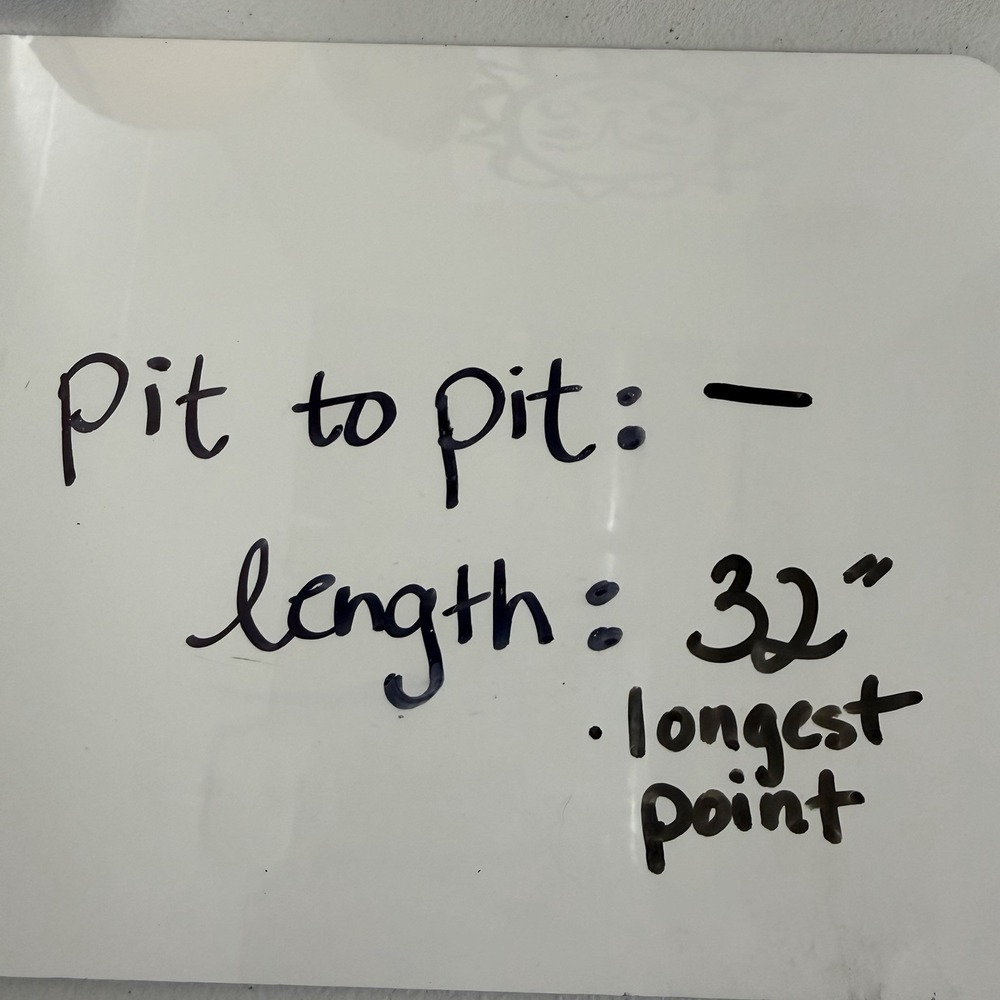 pit to pit: —
length: 32"
· longest
point